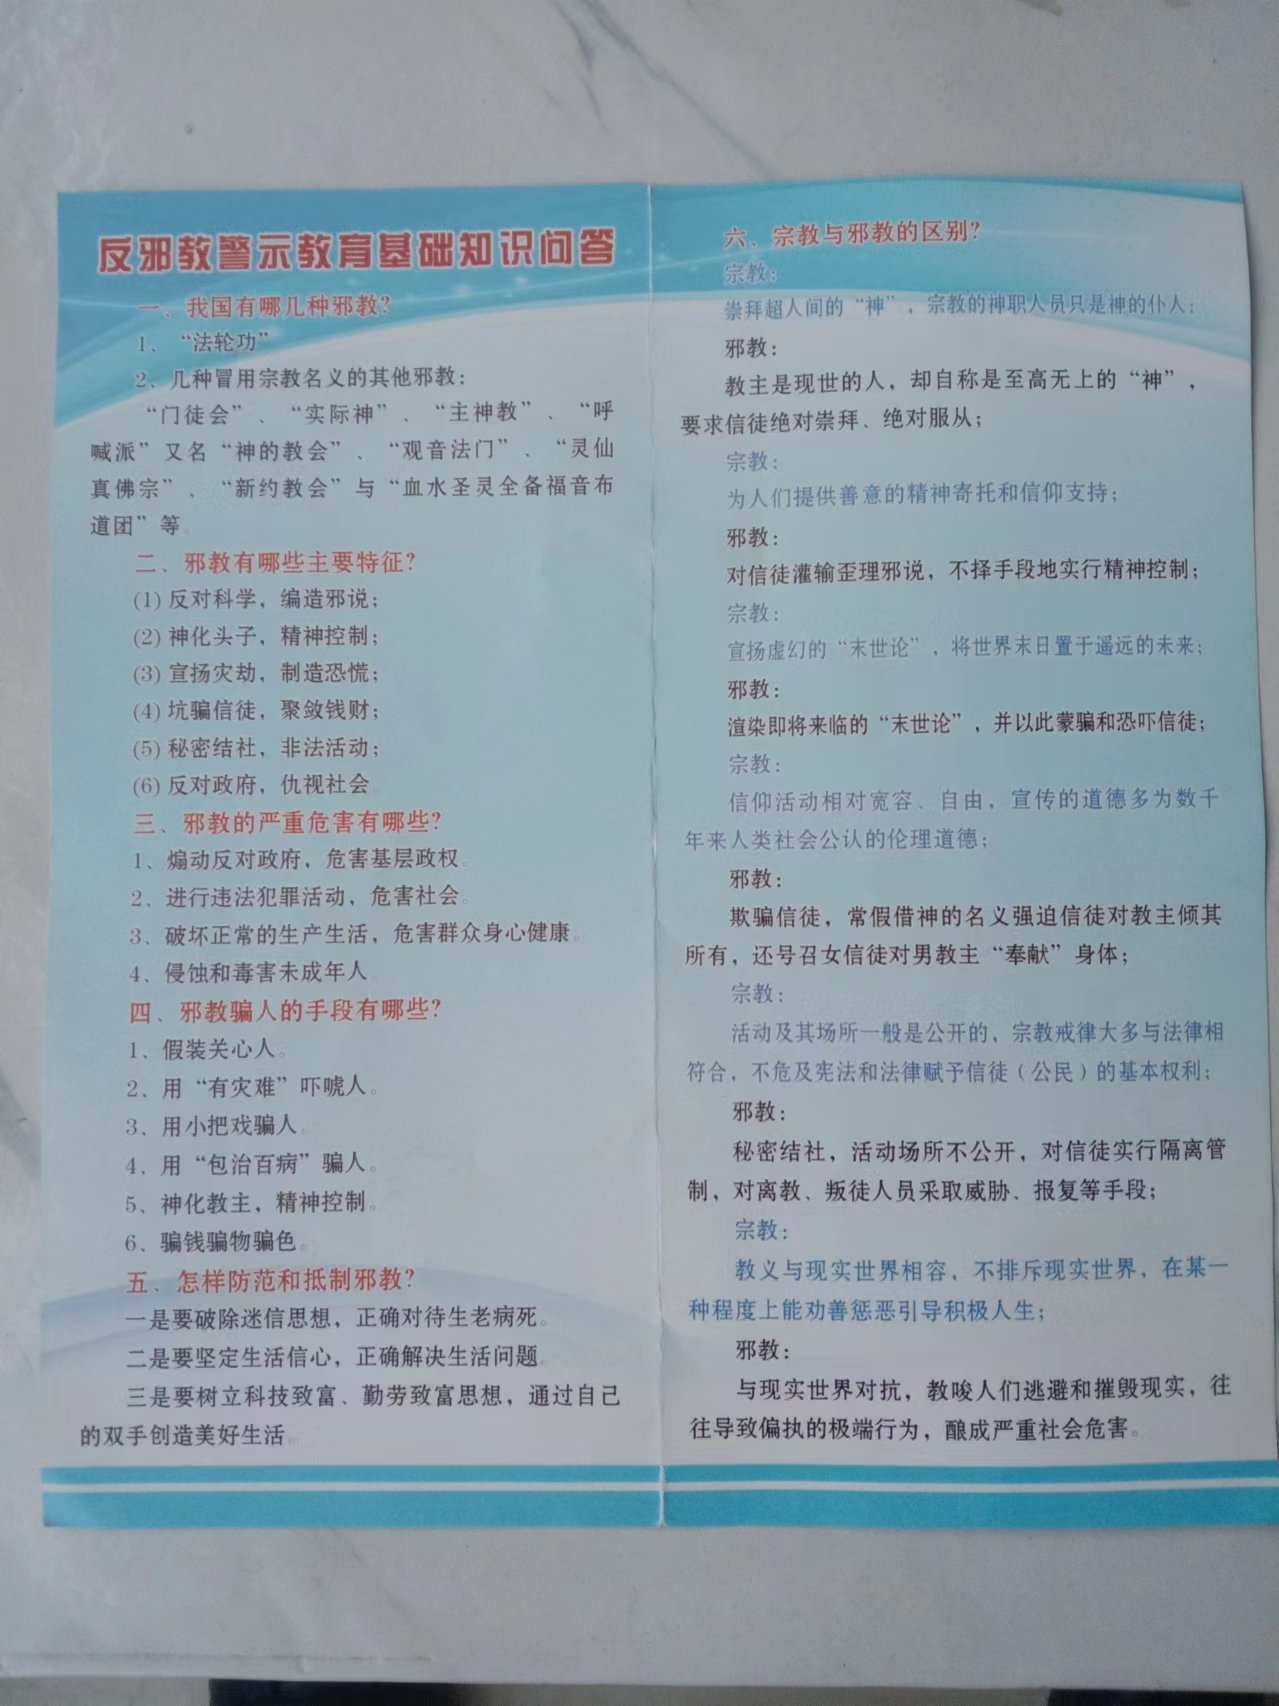 反邪教警示教育基础知识问答
一、我国有哪几种邪教？
1、“法轮功”
2、几种冒用宗教名义的其他邪教：
“门徒会”、“实际神”、“主神教”、“呼
喊派”又名“神的教会”、“观音法门”、“灵仙
真佛宗”、“新约教会”与“血水圣灵全备福音布
道团”等。
二、邪教有哪些主要特征？
(1) 反对科学，编造邪说；
(2) 神化头子，精神控制；
(3) 宣扬灾劫，制造恐慌；
(4) 坑骗信徒，聚敛钱财；
(5) 秘密结社，非法活动；
(6) 反对政府，仇视社会。
三、邪教的严重危害有哪些？
1、煽动反对政府，危害基层政权。
2、进行违法犯罪活动，危害社会。
3、破坏正常的生产生活，危害群众身心健康。
4、侵蚀和毒害未成年人。
四、邪教骗人的手段有哪些？
1、假装关心人。
2、用“有灾难”吓唬人。
3、用小把戏骗人。
4、用“包治百病”骗人。
5、神化教主，精神控制。
6、骗钱骗物骗色。
五、怎样防范和抵制邪教？
一是要破除迷信思想，正确对待生老病死。
二是要坚定生活信心，正确解决生活问题。
三是要树立科技致富、勤劳致富思想，通过自己
的双手创造美好生活。
六、宗教与邪教的区别？
宗教：
崇拜超人间的“神”，宗教的神职人员只是神的仆人；
邪教：
教主是现世的人，却自称是至高无上的“神”，
要求信徒绝对崇拜、绝对服从；
宗教：
为人们提供善意的精神寄托和信仰支持；
邪教：
对信徒灌输歪理邪说，不择手段地实行精神控制；
宗教：
宣扬虚幻的“末世论”，将世界末日置于遥远的未来；
邪教：
渲染即将来临的“末世论”，并以此蒙骗和恐吓信徒；
宗教：
信仰活动相对宽容、自由，宣传的道德多为数千
年来人类社会公认的伦理道德；
邪教：
欺骗信徒，常假借神的名义强迫信徒对教主倾其
所有，还号召女信徒对男教主“奉献”身体；
宗教：
活动及其场所一般是公开的，宗教戒律大多与法律相
符合，不危及宪法和法律赋予信徒（公民）的基本权利；
邪教：
秘密结社，活动场所不公开，对信徒实行隔离管
制，对离教、叛徒人员采取威胁、报复等手段；
宗教：
教义与现实世界相容，不排斥现实世界，在某一
种程度上能劝善惩恶引导积极人生；
邪教：
与现实世界对抗，教唆人们逃避和摧毁现实，往
往导致偏执的极端行为，酿成严重社会危害。